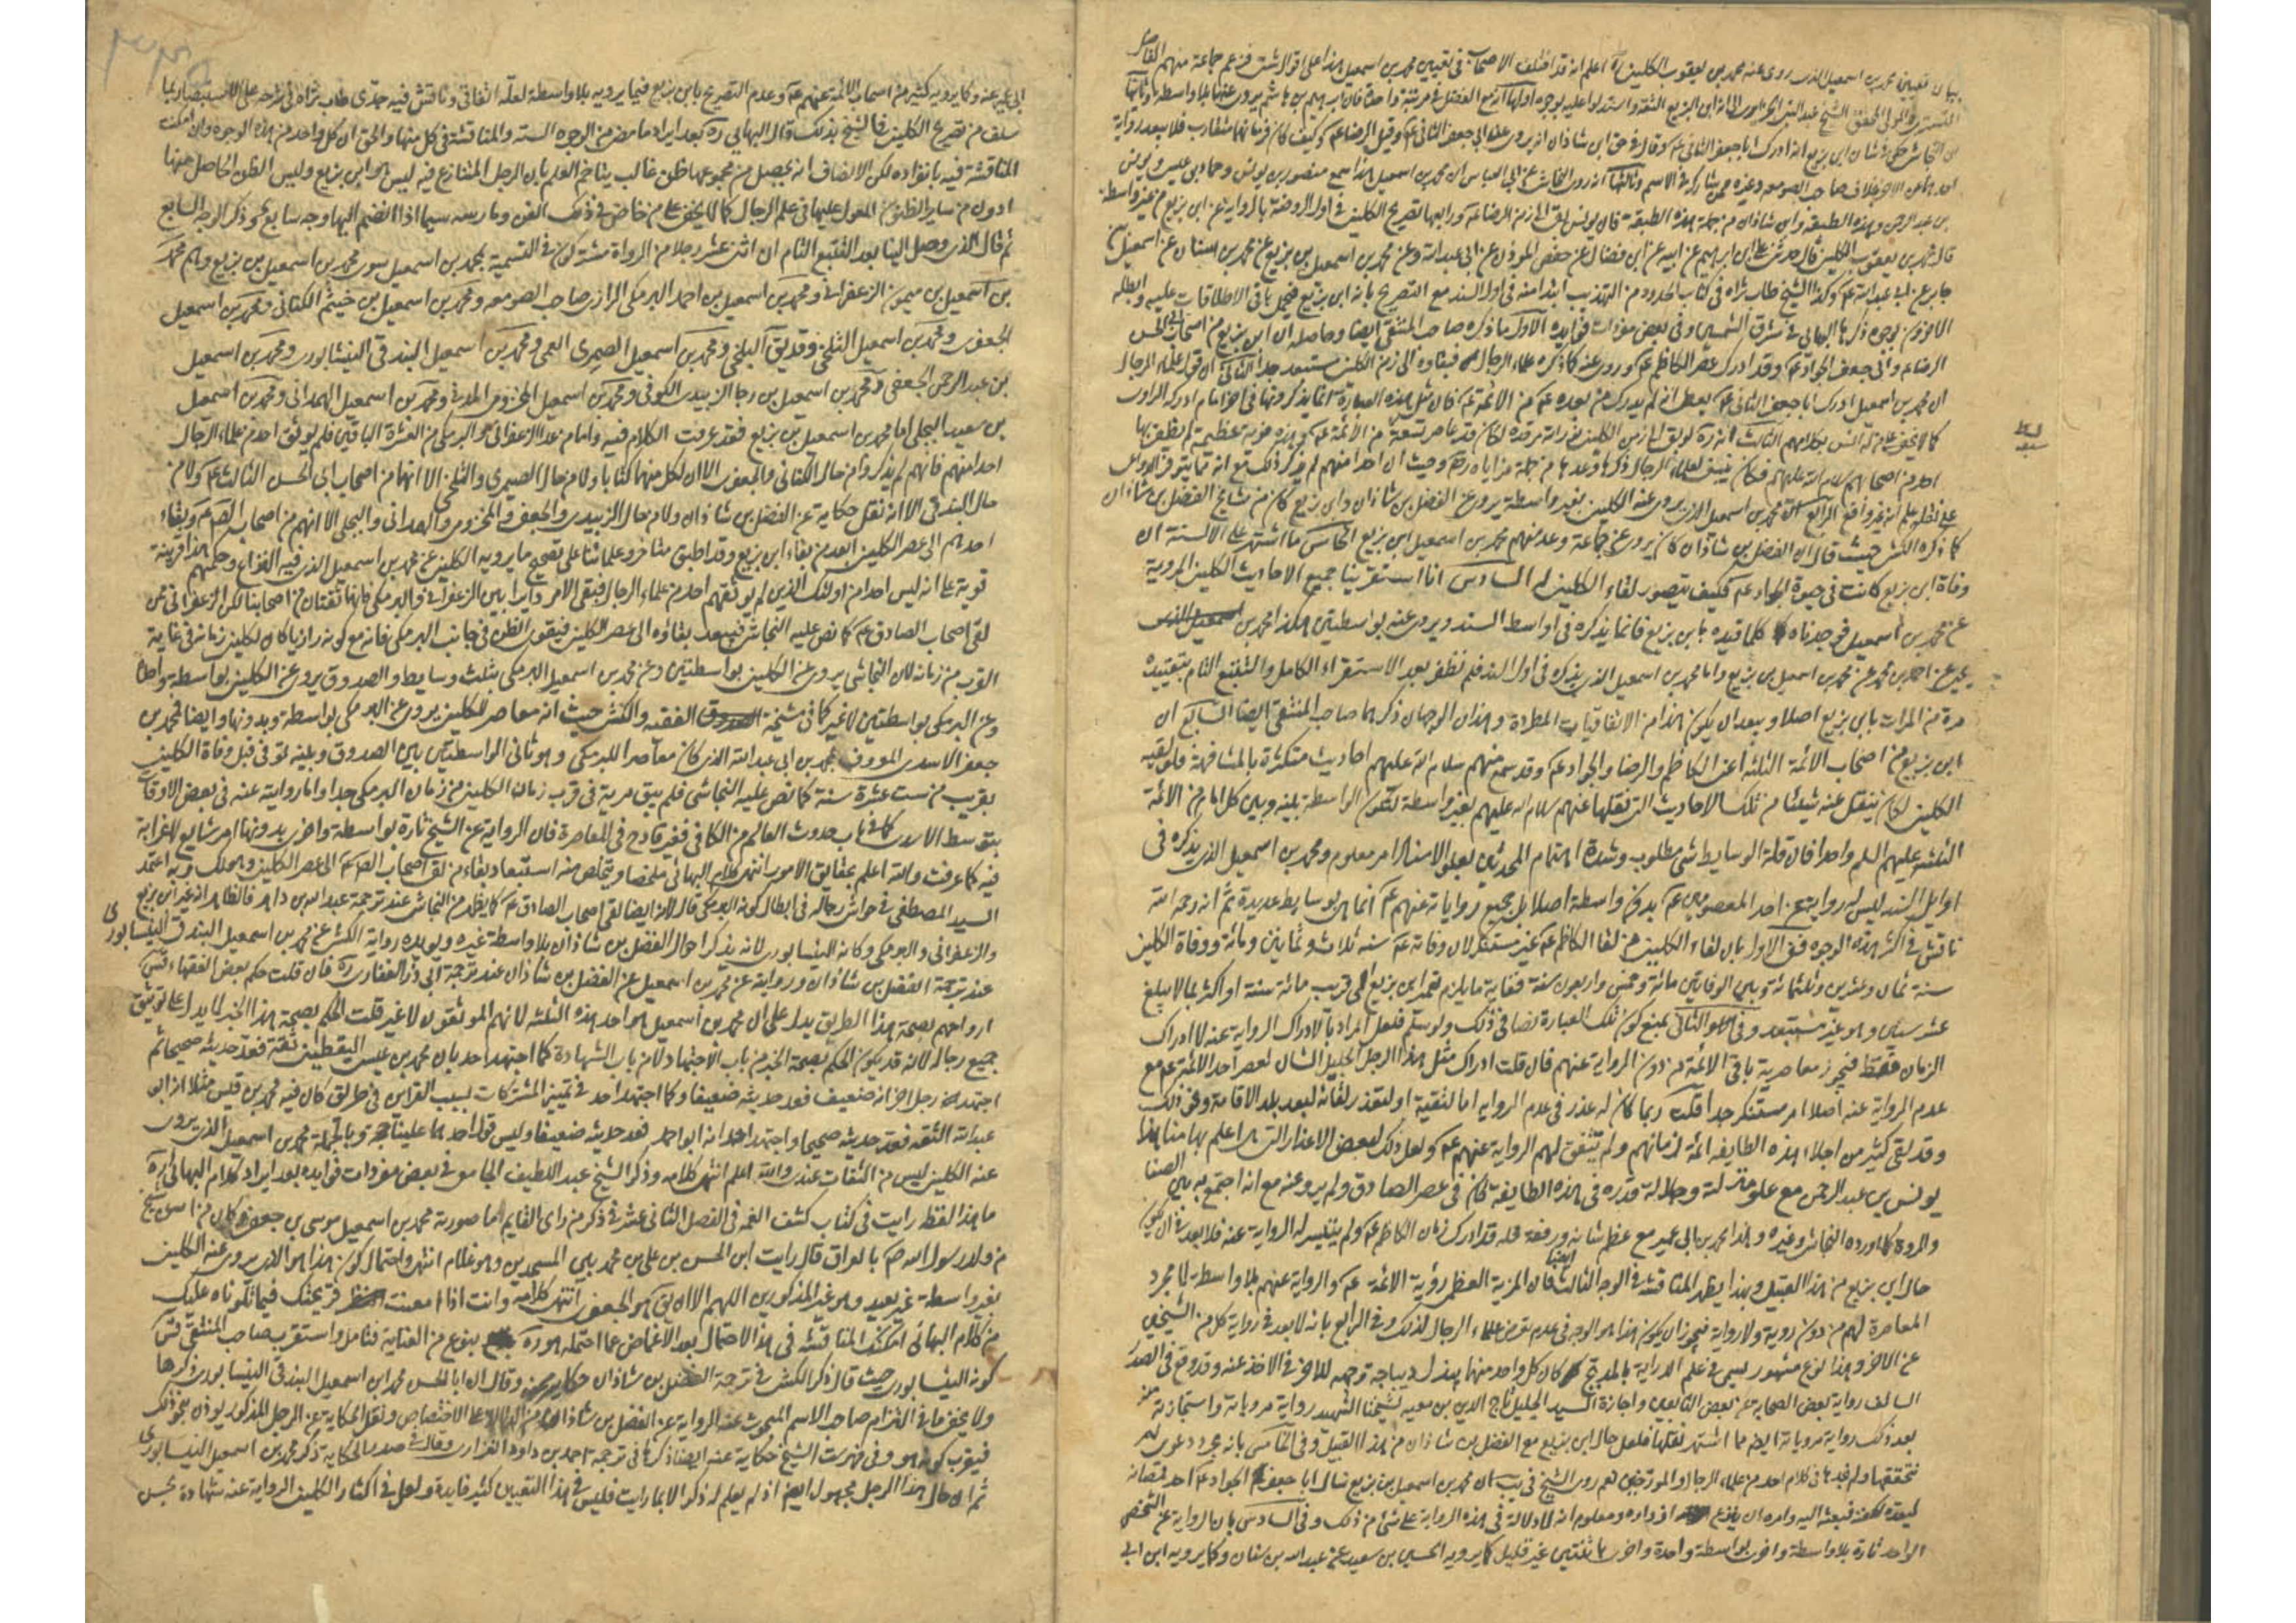 بيان تعيين محمد بن اسمعيل الذى روى عنه محمد بن يعقوب الكلينى ره اعلم انه قد اختلف الاصحاب فى تعيين محمد بن اسمعيل هذا على اقوال شتى فزعم جماعة منهم الفاضل
التسترى والمولى المحقق الشيخ عبد النبى الجزايرى انه ابن البزيع الثقة واستدلوا عليه بوجوه اولها
ان النجاشى حكى فى شان ابن بزيع انه ادرك ابا جعفر الثانى عم وقال فى حق ابن شاذان انه يروى عن ابى جعفر الثانى عم وقيل الرضا عم
بن عبد الرحمن وهذه الطبقه وابن شاذان من جملة هذه الطبقة فان يونس لقى الرضا عم ورابعها تصريح الكلينى فى اول الروضة بالرواية عن ابن بزيع من غير واسطة
قال محمد بن يعقوب الكلينى قال حدثنى على بن ابرهيم عن ابيه عن ابن فضال عن حفص المؤذن عن ابى عبد الله وعن محمد بن اسمعيل بن بزيع عن محمد بن سنان عن اسمعيل بن
جابر عن ابى عبد الله عم وكذا الشيخ طاب ثراه فى كتاب الحدود من التهذيب ابتدا منه فى اول السند مع التصريح بانه ابن بزيع فيحمل باقى الاطلاقات عليه وابطله
الاخرون بوجوه ذكرها البهائى فى مشرق الشمسين وفى بعض مفردات فوايده الاول ما ذكره صاحب المنتقى ايضا وحاصله ان ابن بزيع من اصحاب ابى الحسن
الرضا عم وابى جعفر الجواد عم وقد ادرك عصر الكاظم عم وروى عنه كما ذكره علماء الرجال فبقاؤه الى زمن الكلينى مستبعد جدا الثانى ان قول علماء الرجال
ان محمد بن اسمعيل ادرك ابا جعفر الثانى عم يعطى انه لم يدرك من بعده عم من الائمة عم فان مثل هذه العبارة انما يذكرونها فى اخر امام ادركه الراوى
كما لا يخفى على من له انس بكلامهم الثالث انه ره لو بقى الى زمن الكلينى نور الله مرقده لكان قد عاصر ستة من الائمة عم وهذه مزية عظيمة لم يظفر بها
احد من اصحابهم سلام الله عليهم فكان ينبغى لعلماء الرجال ذكرها وعدها من جملة مزاياه ره وحيث ان احدا منهم لم يذكر ذلك مع انه مما يتوفر الدواعى
على نقله علم انه غير واقع الرابع ان محمد بن اسمعيل الذى يروى عنه الكلينى بغير واسطة يروى عن الفضل بن شاذان وابن بزيع كان من مشايخ الفضل بن شاذان
كما ذكره الكشى حيث قال ان الفضل بن شاذان كان يروى عن جماعة وعد منهم محمد بن اسمعيل ابن بزيع الخامس ما اشتهر على الالسنة ان
وفاة ابن بزيع كانت فى حيوة الجواد عم فكيف يتصور لقاء الكلينى له السادس انا استقرينا جميع الاحاديث الكلينى المروية
عن محمد بن اسمعيل فوجدناه كلما قيده بابن بزيع فانما يذكره فى اواسط السند ويروى عنه بواسطتين هكذا محمد بن
يحيى عن احمد بن محمد عن محمد بن اسمعيل بن بزيع واما محمد بن اسمعيل الذى يذكره فى اول السند فلم نظفر بعد الاستقراء الكامل والتتبع التام بتقييده
مرة من المرات بابن بزيع اصلا ويبعد ان يكون هذا من الاتفاقيات المطردة وهذان الوجهان ذكرهما صاحب المنتقى ايضا السابع ان
ابن بزيع من اصحاب الائمة الثلثة اعنى الكاظم والرضا والجواد عم وقد سمع منهم سلام الله عليهم احاديث متكثرة بالمشافهة فلو لقيه
الكلينى لكان ينقل عنه شيئا من تلك الاحاديث التى نقلها عنهم سلام الله عليهم بغير واسطة لتكون الواسطة بينه وبين كل امام من الائمة
الثلثة عليهم السلم واحدا فان قلة الوسايط شى مطلوب وشدة اهتمام المحدثين بعلو الاسناد امر معلوم ومحمد بن اسمعيل الذى يذكره فى
اوايل السند ليس له رواية عن احد المعصومين عم بدون واسطة اصلا بل جميع رواياته عنهم عم انما هى بوسايط عديدة ثم انه رحمه الله
ناقش فى اكثر هذه الوجوه ففى الاول بان لقاء الكلينى من لقى الكاظم عم غير مستنكر لان وفاته عم سنه ثلاث وثمانين ومائة ووفاة الكلينى
سنة ثمان وعشرين وثلثمائة وبين الوفاتين مائة وخمس واربعون سنة فغاية ما يلزم تعمير ابن بزيع الى قريب مائة سنة او اكثر بما لا يبلغ
عشر سنين وهو غير مستبعد وفى الثانى بمنع كون تلك العبارة نصا فى ذلك ولو سلم فلعل المراد بالادراك الرواية عنه لا ادراك
الزمان فقط فيجوز معاصرته باقى الائمة من دون الرواية عنهم فان قلت ادراك مثل هذا الرجل الجليل الشان لعصر احد الائمة عم مع
عدم الرواية عنه اصلا امر مستنكر جدا قلت ربما كان له عذر فى عدم الرواية اما لتقية او لتعذر لقائه لبعد بلد الاقامة ونحو ذلك
وقد لقى كثير من اجلاء هذه الطايفه ائمة زمانهم ولم يتفق لهم الرواية عنهم عم ولعل ذلك لبعض الاعذار التى هى اعلم بها منا هذا
يونس بن عبد الرحمن مع علو منزلته وجلالة قدره فى هذه الطايفة كان فى عصر الصادق ولم يرو عنه مع انه اجتمع به بين الصفا
والمروة كما اورده النجاشى وغيره وهذا محمد بن ابى عمير مع عظم شانه ورفعة محله قد ادرك زمان الكاظم عم ولم يتيسر له الرواية عنه فلا بعد فى ان يكون
حال ابن بزيع من هذا القبيل وبهذا يظهر المناقشة فى الوجه الثالث ايضا فان المزية العظمى رؤية الائمة عم والرواية عنهم بلا واسطة لا مجرد
المعاصرة لهم من دون روية ولا رواية فيجوز ان يكون هذا هو الوجه فى عدم تعرض علماء الرجال لذلك وفى الرابع بانه لا بعد فى رواية كل من الشيخين
عن الاخر وهذا نوع مشهور يسمى فى علم الدراية بالمدبج كان كل واحد منهما يبذل ديباجة وجهه للاخر فى الاخذ عنه وقد وقع فى الصدر
السالف رواية بعض الصحابة عن بعض التابعين واجازة السيد الجليل تاج الدين بن معيه لشيخنا الشهيد رواية مروياته واستجازته منه
بعد ذلك رواية مروياته ايضا مما اشتهر نقلها فلعل حال ابن بزيع مع الفضل بن شاذان من هذا القبيل وفى الخامس بانه مجرد دعوى لم
نتحققها ولم نجدها فى كلام احد من علماء الرجال والمورخين نعم روى الشيخ فى يب ان محمد بن اسمعيل بن بزيع سال ابا جعفر الجواد عم احد قمصانه
ليعده لكفنه فبعثه اليه وامره ان ينزع ازراره ومعلوم انه لا دلالة فى هذه الرواية على شى من ذلك وفى السادس بان الرواية عن الشخص
الواحد تارة بلا واسطة واخرى بواسطة واحدة واخرى باثنتين غير قليل كما يرويه الحسين بن سعيد عن عبد الله بن سنان وكما يرويه ابن ابى
ابى عمير عنه وكما يرويه كثير من اصحاب الائمة عنهم عم وعدم التصريح بابن بزيع فيما يرويه بلا واسطة لعله اتفاقى وناقش فيه جدى طاب ثراه فى شرحه على الاستبصار بما
سلف من تصريح الكلينى والشيخ بذلك وقال البهايى ره بعد ايراد ما مضى من الوجوه الستة والمناقشة فى كل منها والحق ان كل واحد من هذه الوجوه وان امكنت
المناقشة فيه بانفراده لكن الانصاف انه يحصل من مجموعها ظن غالب يتاخم العلم بان الرجل المتنازع فيه ليس هو ابن بزيع وليس الظن الحاصل منها
ادون من ساير الظنون المعول عليها فى علم الرجال كما لا يخفى على من خاض فى ذلك الفن ومارسه سيما اذا انضم اليها وجه سابع ثم ذكر الوجه السابع
ثم قال الذى وصل الينا بعد التتبع التام ان اثنى عشر رجلا من الرواة مشتركون فى التسمية بمحمد بن اسمعيل سوى محمد بن اسمعيل بن بزيع وهم محمد
بن اسمعيل بن ميمون الزعفرانى ومحمد بن اسمعيل بن احمد البرمكى الرازى صاحب الصومعه ومحمد بن اسمعيل بن خيثم الكنانى ومحمد بن اسمعيل
الجعفرى ومحمد بن اسمعيل الثلجى وقد يق البلخى ومحمد بن اسمعيل الصيمرى القمى ومحمد بن اسمعيل البندقى النيشابورى ومحمد بن اسمعيل
بن عبد الرحمن الجعفى ومحمد بن اسمعيل بن رجا الزبيدى الكوفى ومحمد بن اسمعيل المخزومى المدنى ومحمد بن اسمعيل الهمدانى ومحمد بن اسمعيل
بن سعيد البجلى اما محمد بن اسمعيل بن بزيع فقد عرفت الكلام فيه واما من عدا الزعفرانى والبرمكى من العشرة الباقين فلم يوثق احد من علماء الرجال
احدا منهم فانهم لم يذكروا من حال الكنانى والجعفرى الا ان لكل منهما كتابا ولا من حال الصيمرى والثلجى الا انهما من اصحاب ابى الحسن الثالث عم ولا من
حال البندقى الا انه نقل حكاية عن الفضل بن شاذان ولا من حال الزبيدى والجعفى والمخزومى والهمدانى والبجلى الا انهم من اصحاب الصادق عم وبقاء
احدهم الى عصر الكلينى ابعد من بقاء ابن بزيع وقد اطبق متاخروا علمائنا على تصحيح ما يرويه الكلينى عن محمد بن اسمعيل الذى فيه النزاع وحكمهم هذا قرينة
قوية على انه ليس احدا من اولئك الذين لم يوثقهم احد من علماء الرجال فبقى الامر دايرا بين الزعفرانى والبرمكى فانهما ثقتان من اصحابنا لكن الزعفرانى ممن
لقى اصحاب الصادق عم كما نص عليه النجاشى فيبعد بقاؤه الى عصر الكلينى فيقوى الظن فى جانب البرمكى فانه مع كونه رازيا كالكلينى زمانه فى غاية
القرب من زمانه لان النجاشى يروى عن الكلينى بواسطتين وعن محمد بن اسمعيل البرمكى بثلث وسايط والصدوق يروى عن الكلينى بواسطة واحدة
وعن البرمكى بواسطتين لا غير كما فى مشيخة الفقيه والكشى حيث انه معاصر للكلينى يروى عن البرمكى بواسطة وبدونها وايضا فمحمد بن
جعفر الاسدى المعروف بمحمد بن ابى عبد الله الذى كان معاصرا للبرمكى وهو ثانى الواسطتين بين الصدوق وبينه توفى قبل وفاة الكلينى
بقريب من ست عشرة سنة كما نص عليه النجاشى فلم يبق مرية فى قرب زمان الكلينى من زمان البرمكى جدا واما روايته عنه فى بعض الاوقات
بتوسط الاسدى كما فى باب حدوث العالم من الكافى فغير قادح فى المعاصرة فان الرواية عن الشيخ تارة بواسطة واخرى بدونها امر شايع لا غرابة
فيه كما عرفت والله اعلم بحقايق الامور انتهى كلام البهائى ملخصا
السيد المصطفى فى حواشى رجاله فى ابطال كونه البرمكى قال لانه ايضا لقى اصحاب الصادق عم كما يظهر من النجاشى عند ترجمة عبد الله بن داهر فالظاهر انه غير ابن بزيع
والزعفرانى والبرمكى وكانه النيسابورى لانه يذكر احوال الفضل بن شاذان بلا واسطة غيره ويويده رواية الكشى عن محمد بن اسمعيل البندقى النيسابورى
عند ترجمة الفضل بن شاذان وروايته عن محمد بن اسمعيل عن الفضل بن شاذان عند ترجمة ابى ذر الغفارى ره فان قلت حكم بعض الفقهاء قدس
ارواحهم بصحة هذا الطريق يدل على ان محمد بن اسمعيل هو احد هذه الثلثة لانهم الموثقون لا غير قلت الحكم بصحة هذا الخبر لا يدل على توثيق
جميع رجاله لانه قد يكون الحكم بصحة الخبر من باب الاجتهاد لا من باب الشهادة كما اجتهد احد بان محمد بن عيسى اليقطينى ثقة فعد حديثه صحيحا ثم
اجتهد رجل اخر انه ضعيف فعد حديثه ضعيفا وكما اجتهد احد فى تمييز المشتركات بسبب القراين فى طريق كان فيه محمد بن قيس مثلا انه ابو
عبد الله الثقه فعد حديثه صحيحا واجتهد اخر انه ابو احمد فعد حديثه ضعيفا وليس قول احدهما علينا حجة وبالجملة محمد بن اسمعيل الذى يروى
عنه الكلينى ليس من الثقات عندى والله اعلم انتهى كلامه وذكر الشيخ عبد اللطيف الجامعى فى بعض مفردات فوايده بعد ايراد كلام البهائى ره
ما هذا لفظه رايت فى كتاب كشف الغمه فى الفصل الثانى عشر فى ذكر من راى القايم عم ما صورته محمد بن اسمعيل موسى بن جعفر وكان من اسن شيخ
من ولد رسول الله ص بالعراق قال رايت ابن الحسن بن على بن محمد بين المسجدين وهو غلام انتهى واحتمال كون هذا هو الذى يروى عنه الكلينى
بغير واسطة غير بعيد وهو غير المذكورين اللهم الا ان يق هو الجعفرى انتهى كلامه وانت اذا امعنت قريحتك فيما تلوناه عليك
من كلام البهائى امكنك المناقشة فى هذا الاحتمال بعد الاغماض عما احتمله هو ره بنوع من العناية فتامل واستقرب صاحب المنتقى قدس
كونه النيشابورى حيث قال ذكر الكشى فى ترجمة الفضل بن شاذان حكاية عنه وقال ان ابا الحسن محمد ابن اسمعيل البندقى النيسابورى ذكرها
ولا يخفى ما فى التزام صاحب الاسم المبحوث عنه الرواية عن الفضل بن شاذان من الدلالة على الاختصاص ونقل الحكاية عن الرجل المذكور يوذن بنحو ذلك
فيقرب كونه هو وفى فهرست الشيخ حكاية عنه ايضا ذكرها فى ترجمة احمد بن داود الفزارى وقال فى صدر الحكاية ذكر محمد بن اسمعيل النيسابورى
ثم ان حال هذا الرجل مجهول ايضا اذ لم يعلم له ذكر الا بما رايت فليس فى هذا التعيين كثير فايدة ولعل فى اكثار الكلينى الرواية عنه شهادة بحسن